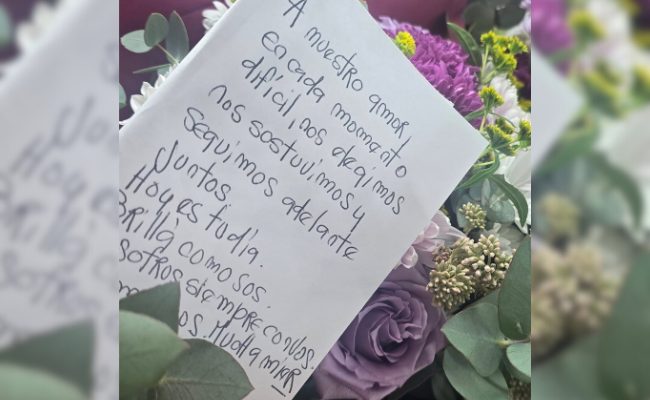 A nuestro amor,
en cada momento
difícil, nos elegimos
nos sostuvimos y
seguimos adelante
Juntos.
Hoy es tu día.
Brillá como sos.
sotros siempre con vos.
os.